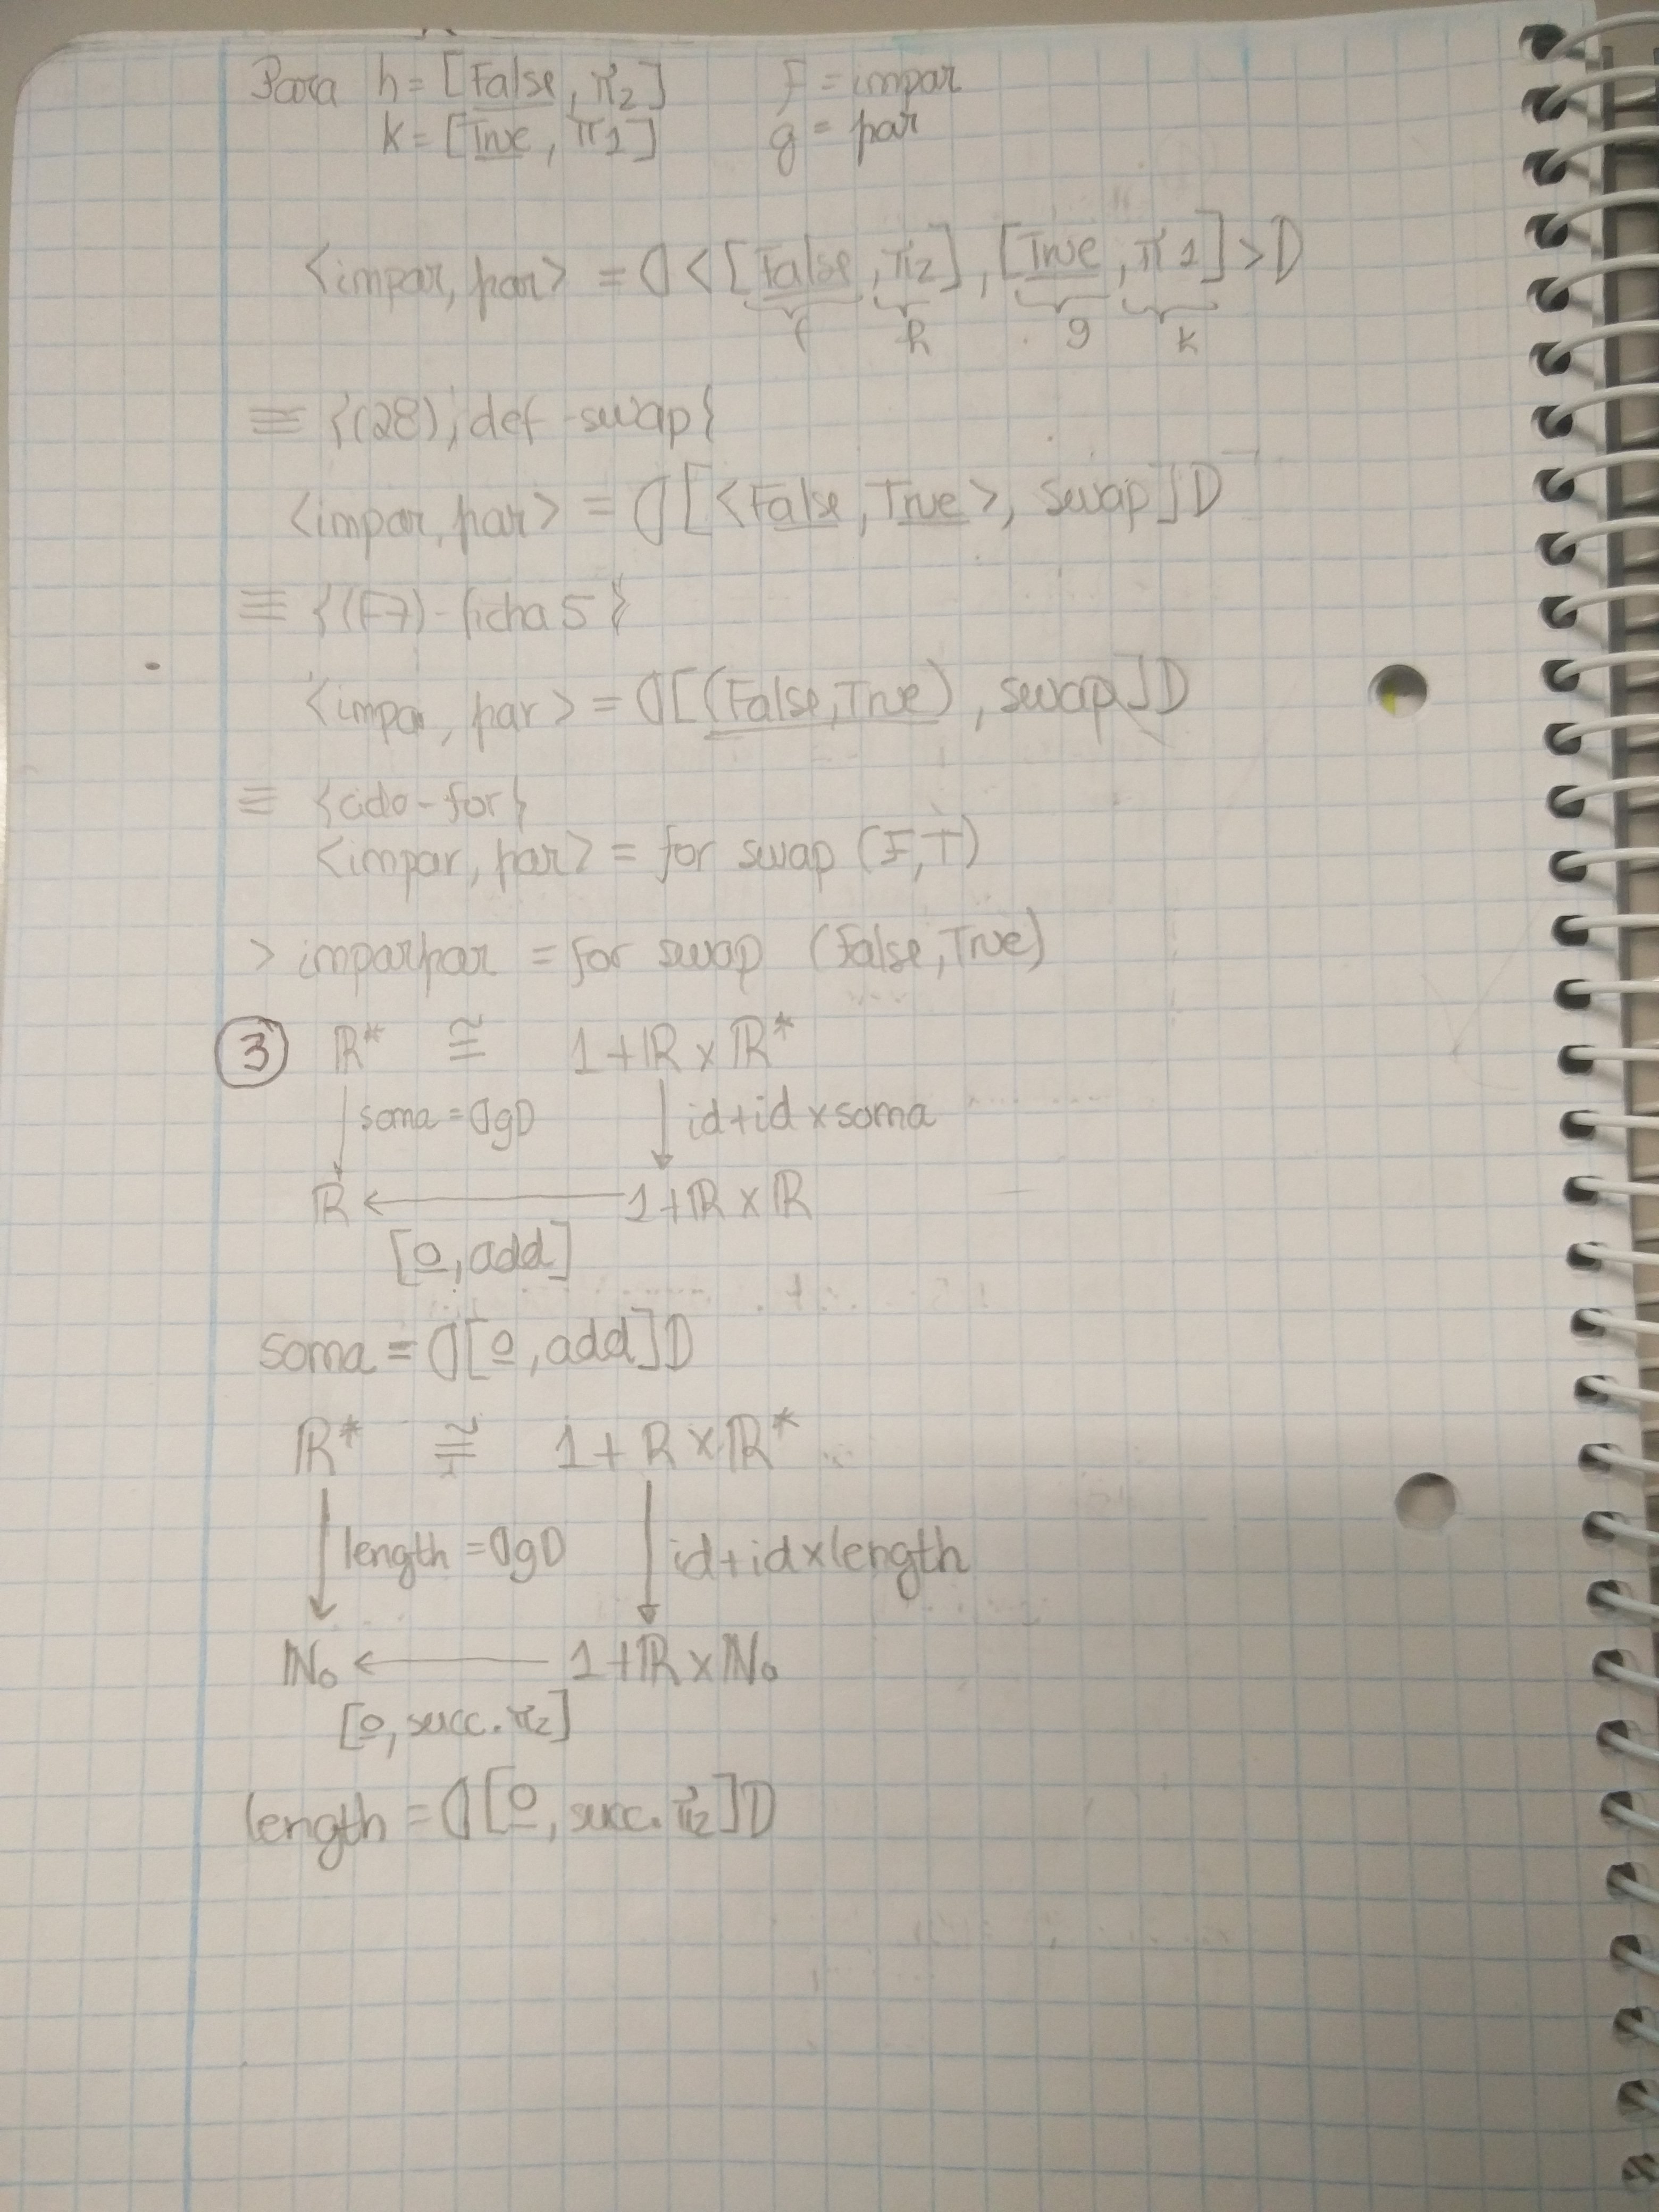 Para h = [False, π2] F = impar
k = [True, π1] g = par
<impar, par> = ⦇<[False, π2], [True, π1]>⦈
f h g k
≡ {(28), def-swap}
<impar, par> = ⦇[<False, True>, swap]⦈
≡ {(F7)-ficha 5}
<impar, par> = ⦇[(False, True), swap]⦈
≡ {ciclo-for}
<impar, par> = for swap (F,T)
> imparpar = for swap (False, True)
③ ℝ* ≅ 1 + ℝ × ℝ*
soma = ⦇g⦈ id + id × soma
ℝ ← 1 + ℝ × ℝ
[0, add]
soma = ⦇[0, add]⦈
ℝ* ≅ 1 + ℝ × ℝ*
length = ⦇g⦈ id + id × length
ℕ₀ ← 1 + ℝ × ℕ₀
[0, succ. π2]
length = ⦇[0, succ. π2]⦈